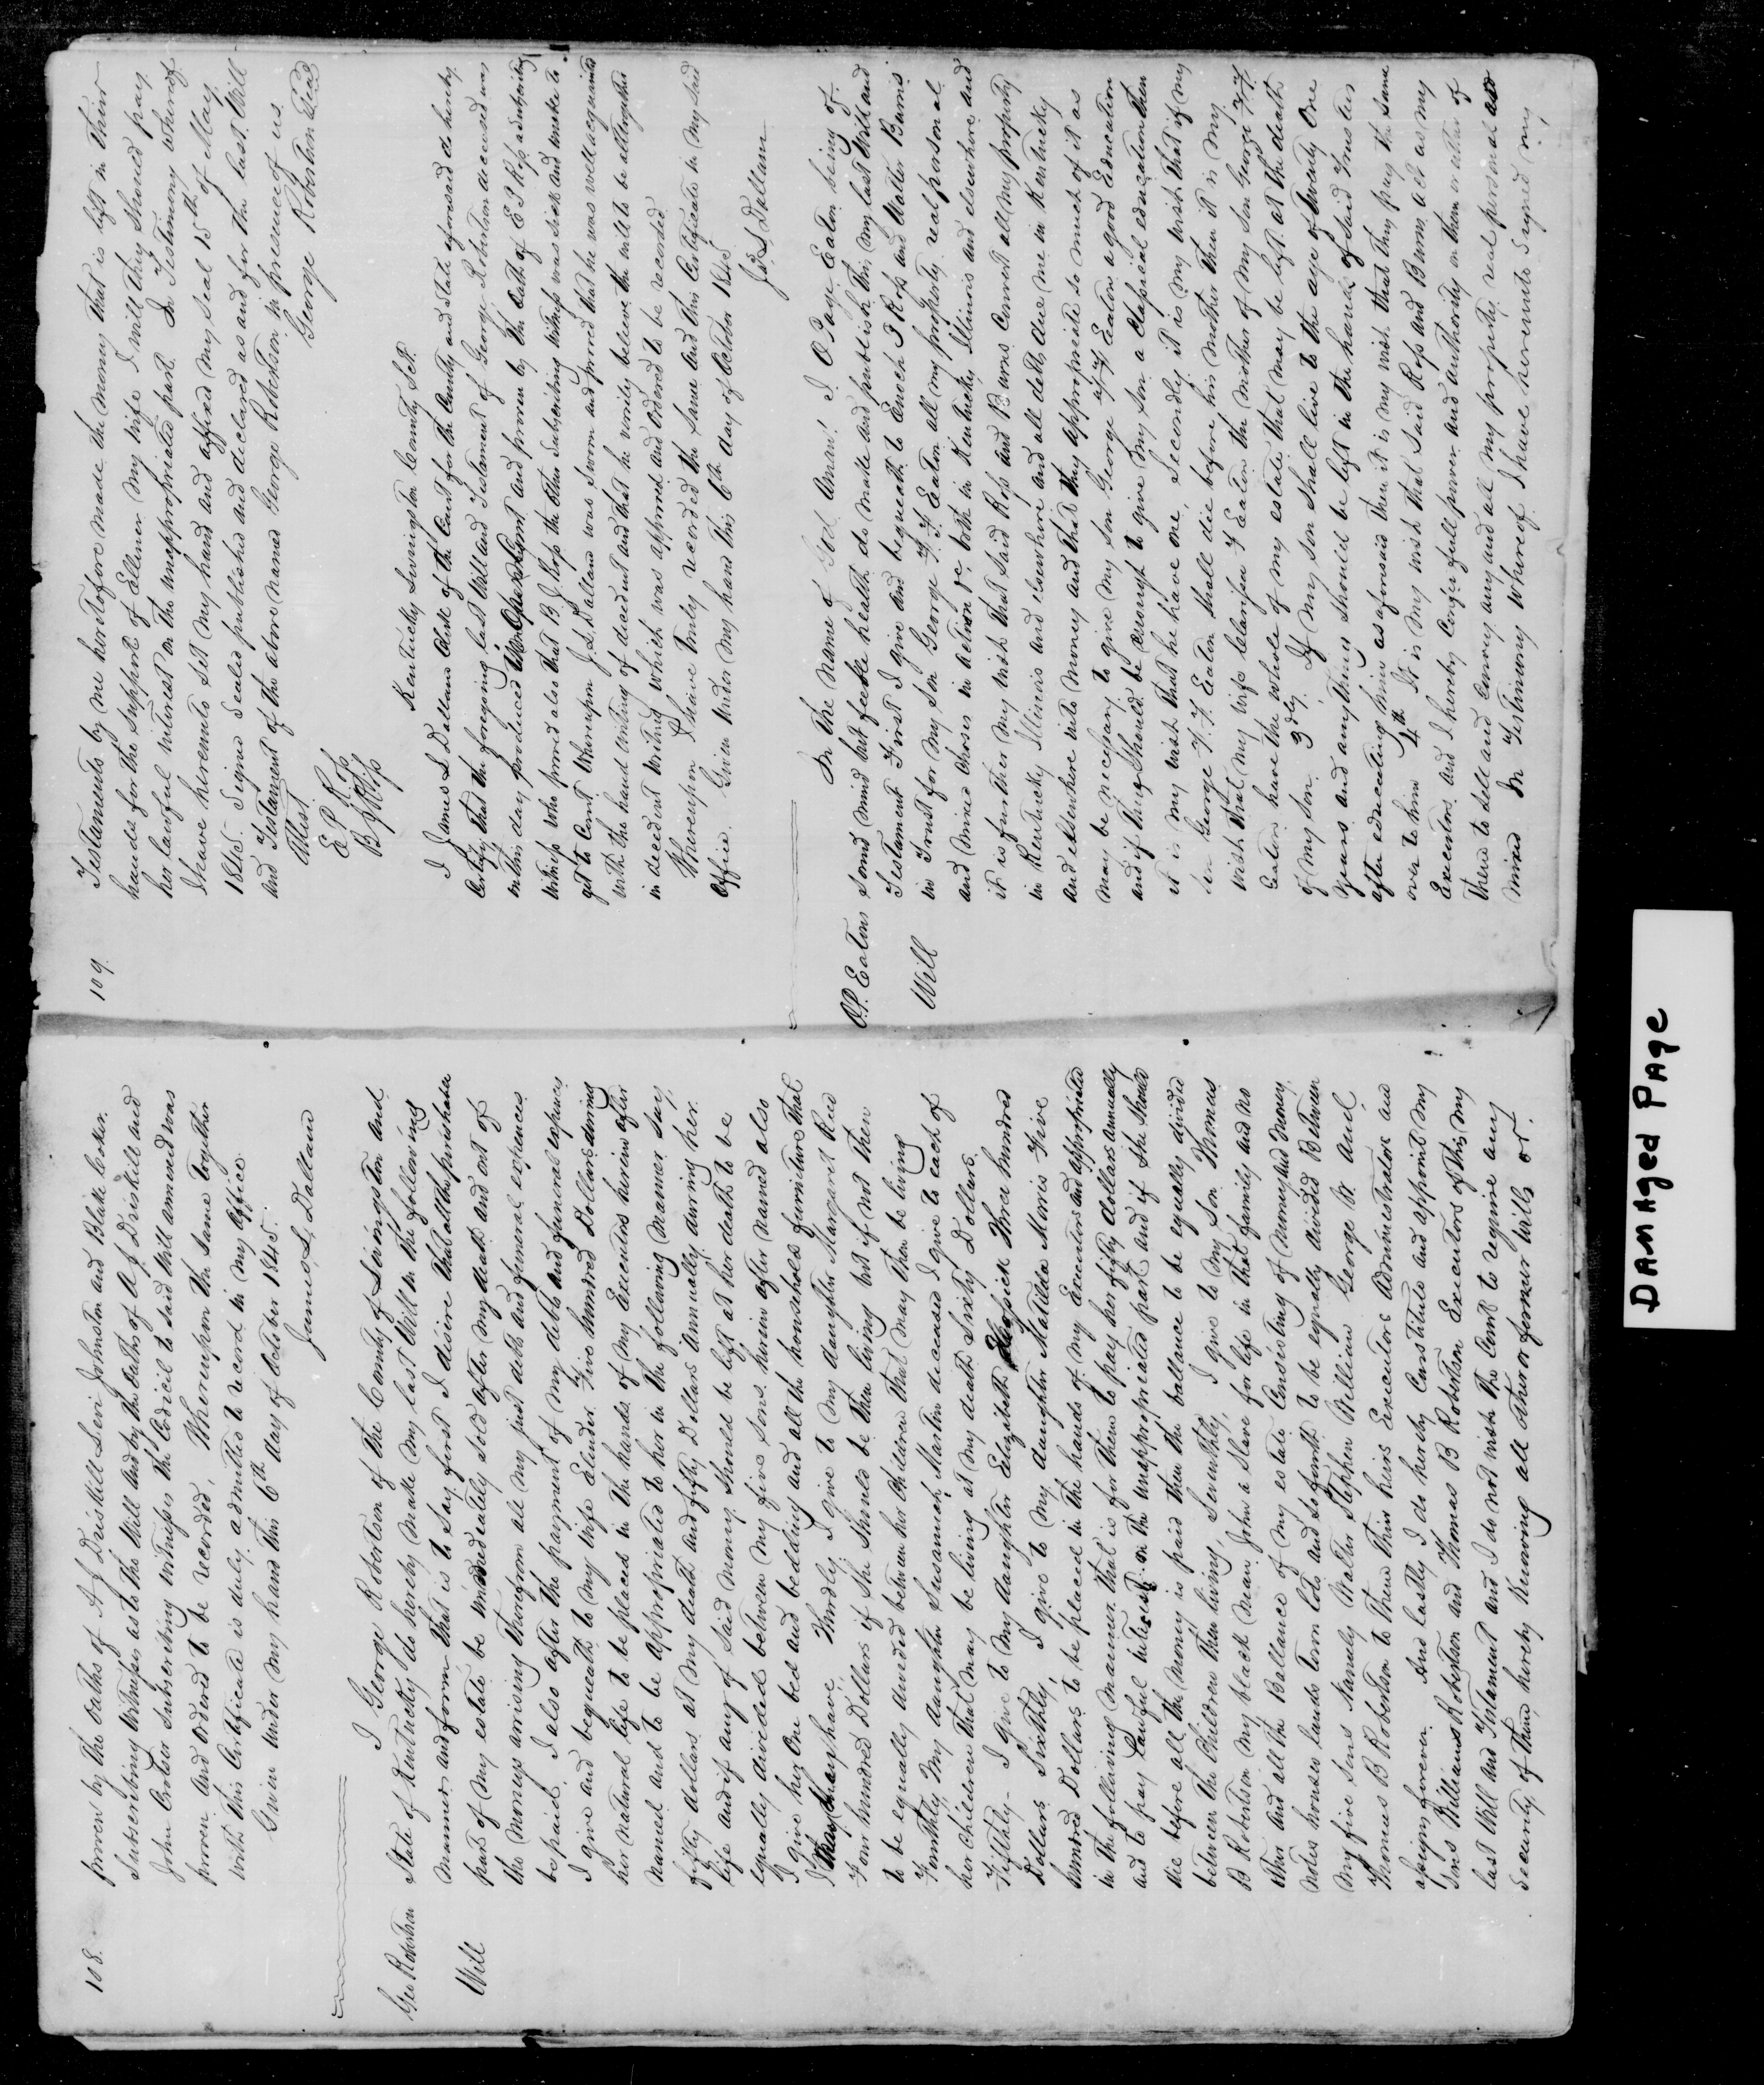 108.
proven by the oaths of A J Driskill Levi Johnston and Blake Coker.
Subscribing witnesses as to the Will and by the oaths of A J Driskill and
John Crotser Subscribing witness the Codicil to said Will annexed was
proven and ordered to be recorded, Whereupon the same together
with this Certificate is duly admitted to record in my office.
Given under my hand this 6th day of October 1845.
James L. Dallam
Geo Robertson
Will
I George Robertson of the County of Livingston and
State of Kentucky do hereby make my last Will in the following
manner and form that is to Say first I desire that all the perishable
part of my estate be immediately sold after my death and out of
the moneys arising therefrom all my just debts and funeral expences
be paid. I also after the payment of my debts and funeral expences
I give and bequeath to my wife Elender Five hundred Dollars during
her natural life to be placed in the hands of my Executors herein after
named and to be appropriated to her in the following manner. Say,
fifty dollars at my death and fifty Dollars Annually during her
life and if any of said money should be left at her death to be
equally divided between my five sons herein after named also
I give her One bed and bedding and all the household furniture that
I may have. Thirdly I give to my daughter Margaret Reed
Four hundred Dollars if She should be then living but if not then
to be equally divided between her children that may then be living
Fourthly, My daughter Susannah Martin deceased I give to each of
her children that may be living at my death Sixty Dollars.
Fifthly- I give to my daughter Elizabeth Three hundred
Dollars. Sixthly, I give to my daughter Matilda Morris Five
hundred Dollars to be placed in the hands of my Executors and appropriated
in the following manner. that is for them to pay her fifty dollars annually
and to pay lawful interest on the unappropriated part and if she should
die before all the money is paid then the ballance to be equally divided
between the children then living, Seventhly, I give to my Son Thomas
B Robertson my black man John a Slave for life in that family and no
other and all the Ballance of my estate Consisting of money and money
notes houses lands town lots and so forth to be equally divided Between
my five Sons Namely Walter Stephen William George W and
Thomas B Robertson to them their heirs Executors Administrators and
assigns forever. And lastly I do hereby Constitute and appoint my
Sons William Robertson and Thomas B Robertson Executors of this my
last Will and Testament and I do not wish the Court to require any
Security of them, hereby Revoking all other or former Wills or.
109.
Testaments by me heretofore made the money that is left in their
hands for the support of Ellener my wife I will they should pay
her lawful interest on the unappropriated part. In Testimony whereof
I have hereunto set my hand and affixed my seal 15th of May
1845. Signed Sealed published and declared as and for the last Will
and Testament of the above named George Robertson in presence of us.
Attest. George Robertson Seal
E P Ross
B J Ross
Kentucky Livingston County Sct.
I James L Dallam Clerk of the Court for the County and State aforesaid do hereby
Certify that the foregoing last Will and Testament of George Robertson deceased was
on this day produced in Open Court and proven by the oath of E P Ross a subscribing
witness who proved also that B J Ross the other subscribing witness was sick and unable to
get to Court Whereupon J. L. Dallam was sworn and proved that he was well acquainted
with the hand writing of decedent and that he verily believe the will to be altogether
in decedent writing which was approved and Ordered to be recorded
Whereupon I have truly recorded the same and this Certificate in my said
Office. Given under my hand this 6th day of October 1845
Jas L Dallam
O.P. Eatons
Will
In the Name of God Aman! I O Page Eaton being of
sound mind but feeble health do make and publish this my last Will and
Testament First I give and bequeath to Enoch J Ross and Walter Burns
in Trust for my Son George F. F. Eaton all my property real personal
and mixed choses in action &c both in Kentucky Illinois and elsewhere and
it is further my wish that said Ross and Burns Convert all my property
in Kentucky Illinois and elsewhere and all debts due me in Kentucky
and elsewhere into money and that they appropriate so much of it as
may be necessary to give my Son George F. F. Eaton a good Education
and if there should be enough to give my Son a classical education then
it is my wish that he have one, Secondly it is my wish that if my
Son George F. F. Eaton shall die before his mother then it is my
wish that my wife Clarissa Y Eaton the mother of my Son George F. F.
Eaton have the whole of my estate that may be left at the death
of my son. 3dly. If my son shall live to the age of twenty One
years and anything should be left in the hands of said Trustees
after educating him as aforesaid then it is my wish that they pay the same
over to him 4th It is my wish that said Ross and Burns act as my
Executors and I hereby Confer full power and authority on them or either of
them to sell and convey any and all my property real personal and
mixed In Testimony whereof I have hereunto Signed my
DAMAged PAge